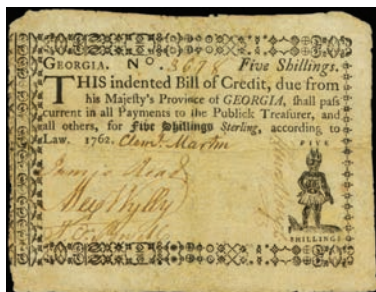 GEORGIA. Nº. 3678 Five Shillings.
THIS indented Bill of Credit, due from
his Majesty's Province of GEORGIA, shall pass
current in all Payments to the Publick Treasurer, and
all others, for Five Shillings Sterling, according to
Law. 1762. Clemt. Martin
FIVE
James Read
Alexr Wylly
SHILLINGS